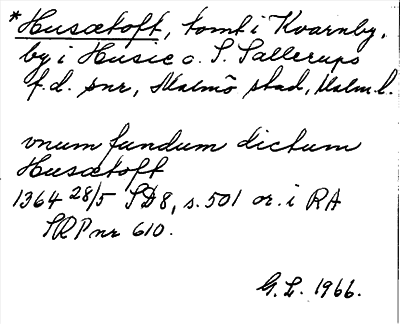 *Husætoft, tomt i Kvarnby,
by i Husie o. S. Sallerups
f.d. snr, Malmö stad, Malm.l.
vnum fundum dictum
Husætoft
1364 28/5 SD8, s. 501 or. i RA
SRPnr 610.
G.L. 1966.